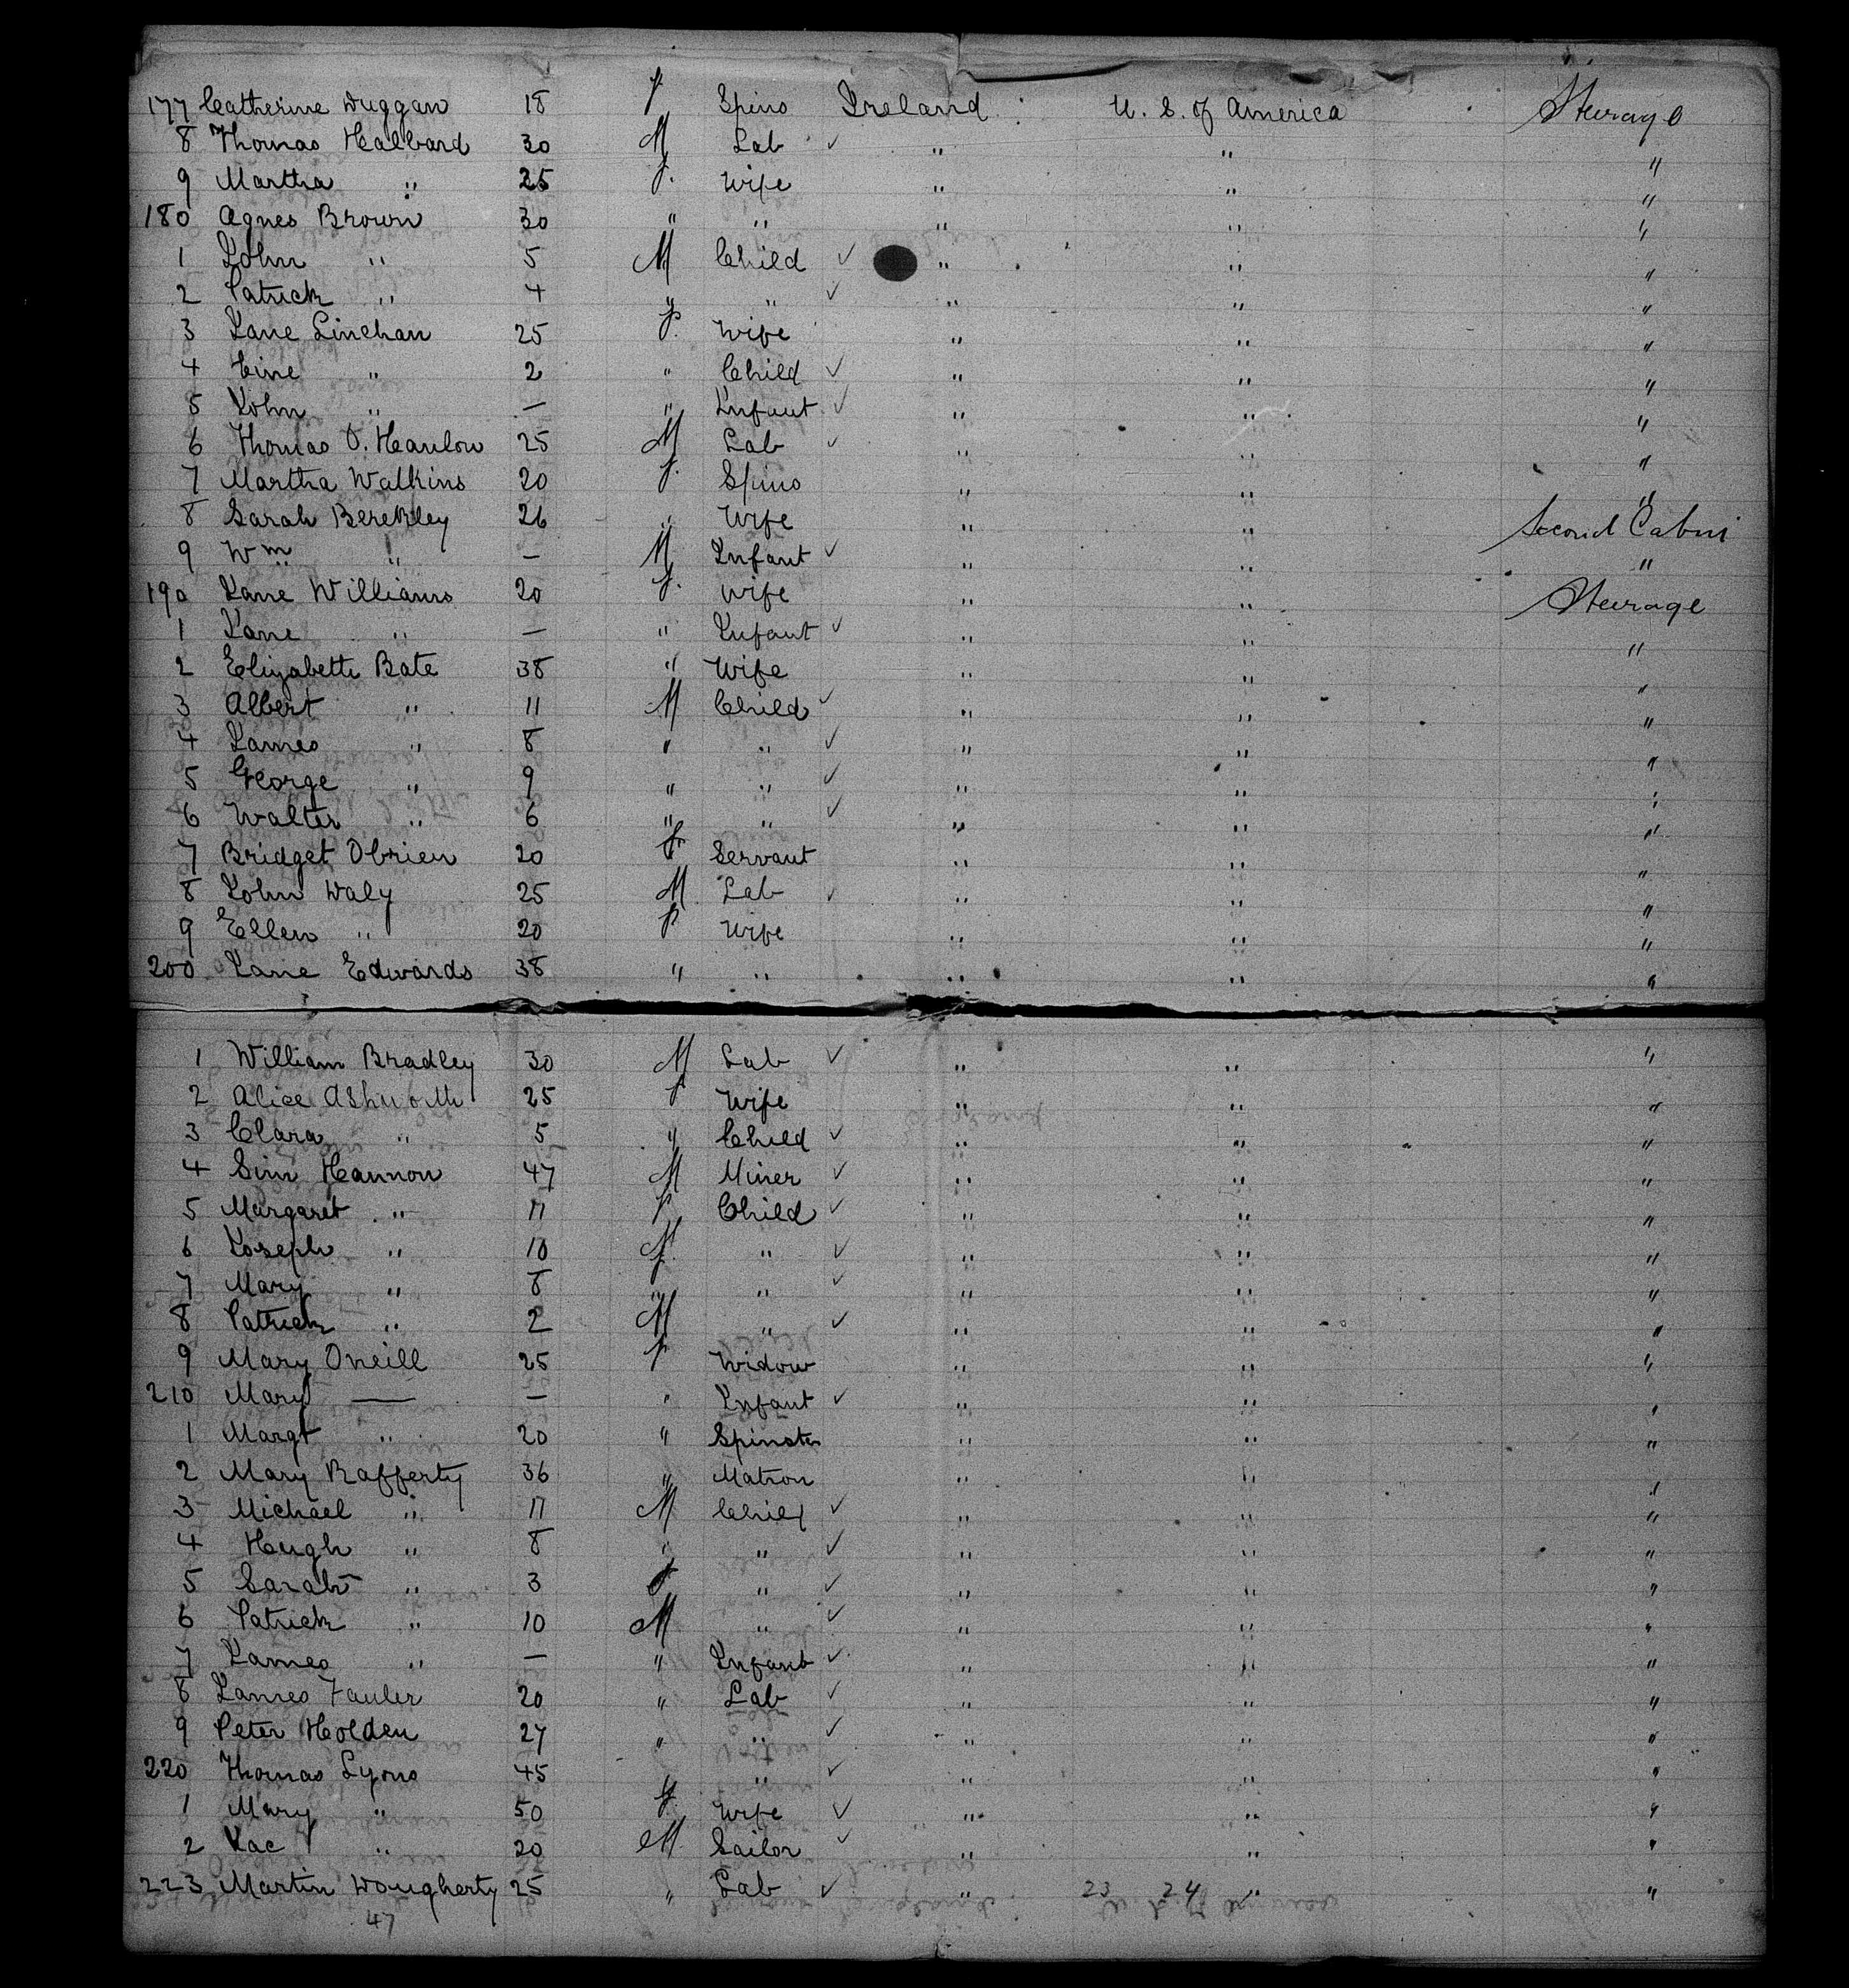 177 Catherine Duggan 18 f Spins Ireland U. S. of America Steerage
8 Thomas Halbard 30 M Lab ✓ " " "
9 Martha " 25 f. Wife " " "
180 Agnes Brown 30 " " " " "
1 John " 5 M Child ✓ " " "
2 Patrick " 4 " " ✓ " " "
3 Jane Linehan 25 f. Wife " " "
4 " 2 " Child ✓ " " "
5 John " — " Infant ✓ " " "
6 Thomas O. Hanlon 25 M Lab ✓ " " "
7 Martha Walkins 20 f. Spins " " "
8 Sarah Berekley 26 " Wife " " Second Cabin
9 Wm " — M Infant ✓ " " "
190 Jane Williams 20 f. Wife " " Steerage
1 Jane " — " Infant ✓ " " "
2 Elizabeth Bate 38 " Wife " " "
3 Albert " 11 M Child ✓ " " "
4 James " 8 " " ✓ " " "
5 George " 9 " " ✓ " " "
6 Walter " 6 " " ✓ " " "
7 Bridget Obrien 20 f Servant " " "
8 John Daly 25 M Lab ✓ " " "
9 Ellen " 20 f Wife " " "
200 Jane Edwards 38 " " " " "
1 William Bradley 30 M Lab ✓ " " "
2 Alice Ashworth 25 f Wife " " "
3 Clara " 5 " Child ✓ " " "
4 Sim Hannon 47 M Miner ✓ " " "
5 Margaret " 11 f Child ✓ " " "
6 Joseph " 10 M " ✓ " " "
7 Mary " 8 f " ✓ " " "
8 Patrick " 2 M " ✓ " " "
9 Mary Oneill 25 f Widow " " "
210 Mary — — " Infant ✓ " " "
1 Margt " 20 " Spinster " " "
2 Mary Rafferty 36 " Matron " " "
3 Michael " 11 M Child ✓ " " "
4 Hugh " 8 " " ✓ " " "
5 Sarah " 3 f " ✓ " " "
6 Patrick " 10 M " ✓ " " "
7 James " — " Infant ✓ " " "
8 James Fauler 20 " Lab ✓ " " "
9 Peter Holden 27 " " ✓ " " "
220 Thomas Lyons 45 " " ✓ " " "
1 Mary " 50 f. Wife ✓ " " "
2 Jac " 20 M Sailor ✓ " " "
223 Martin Dougherty 25 " Lab ✓ " 23 24 " "
47